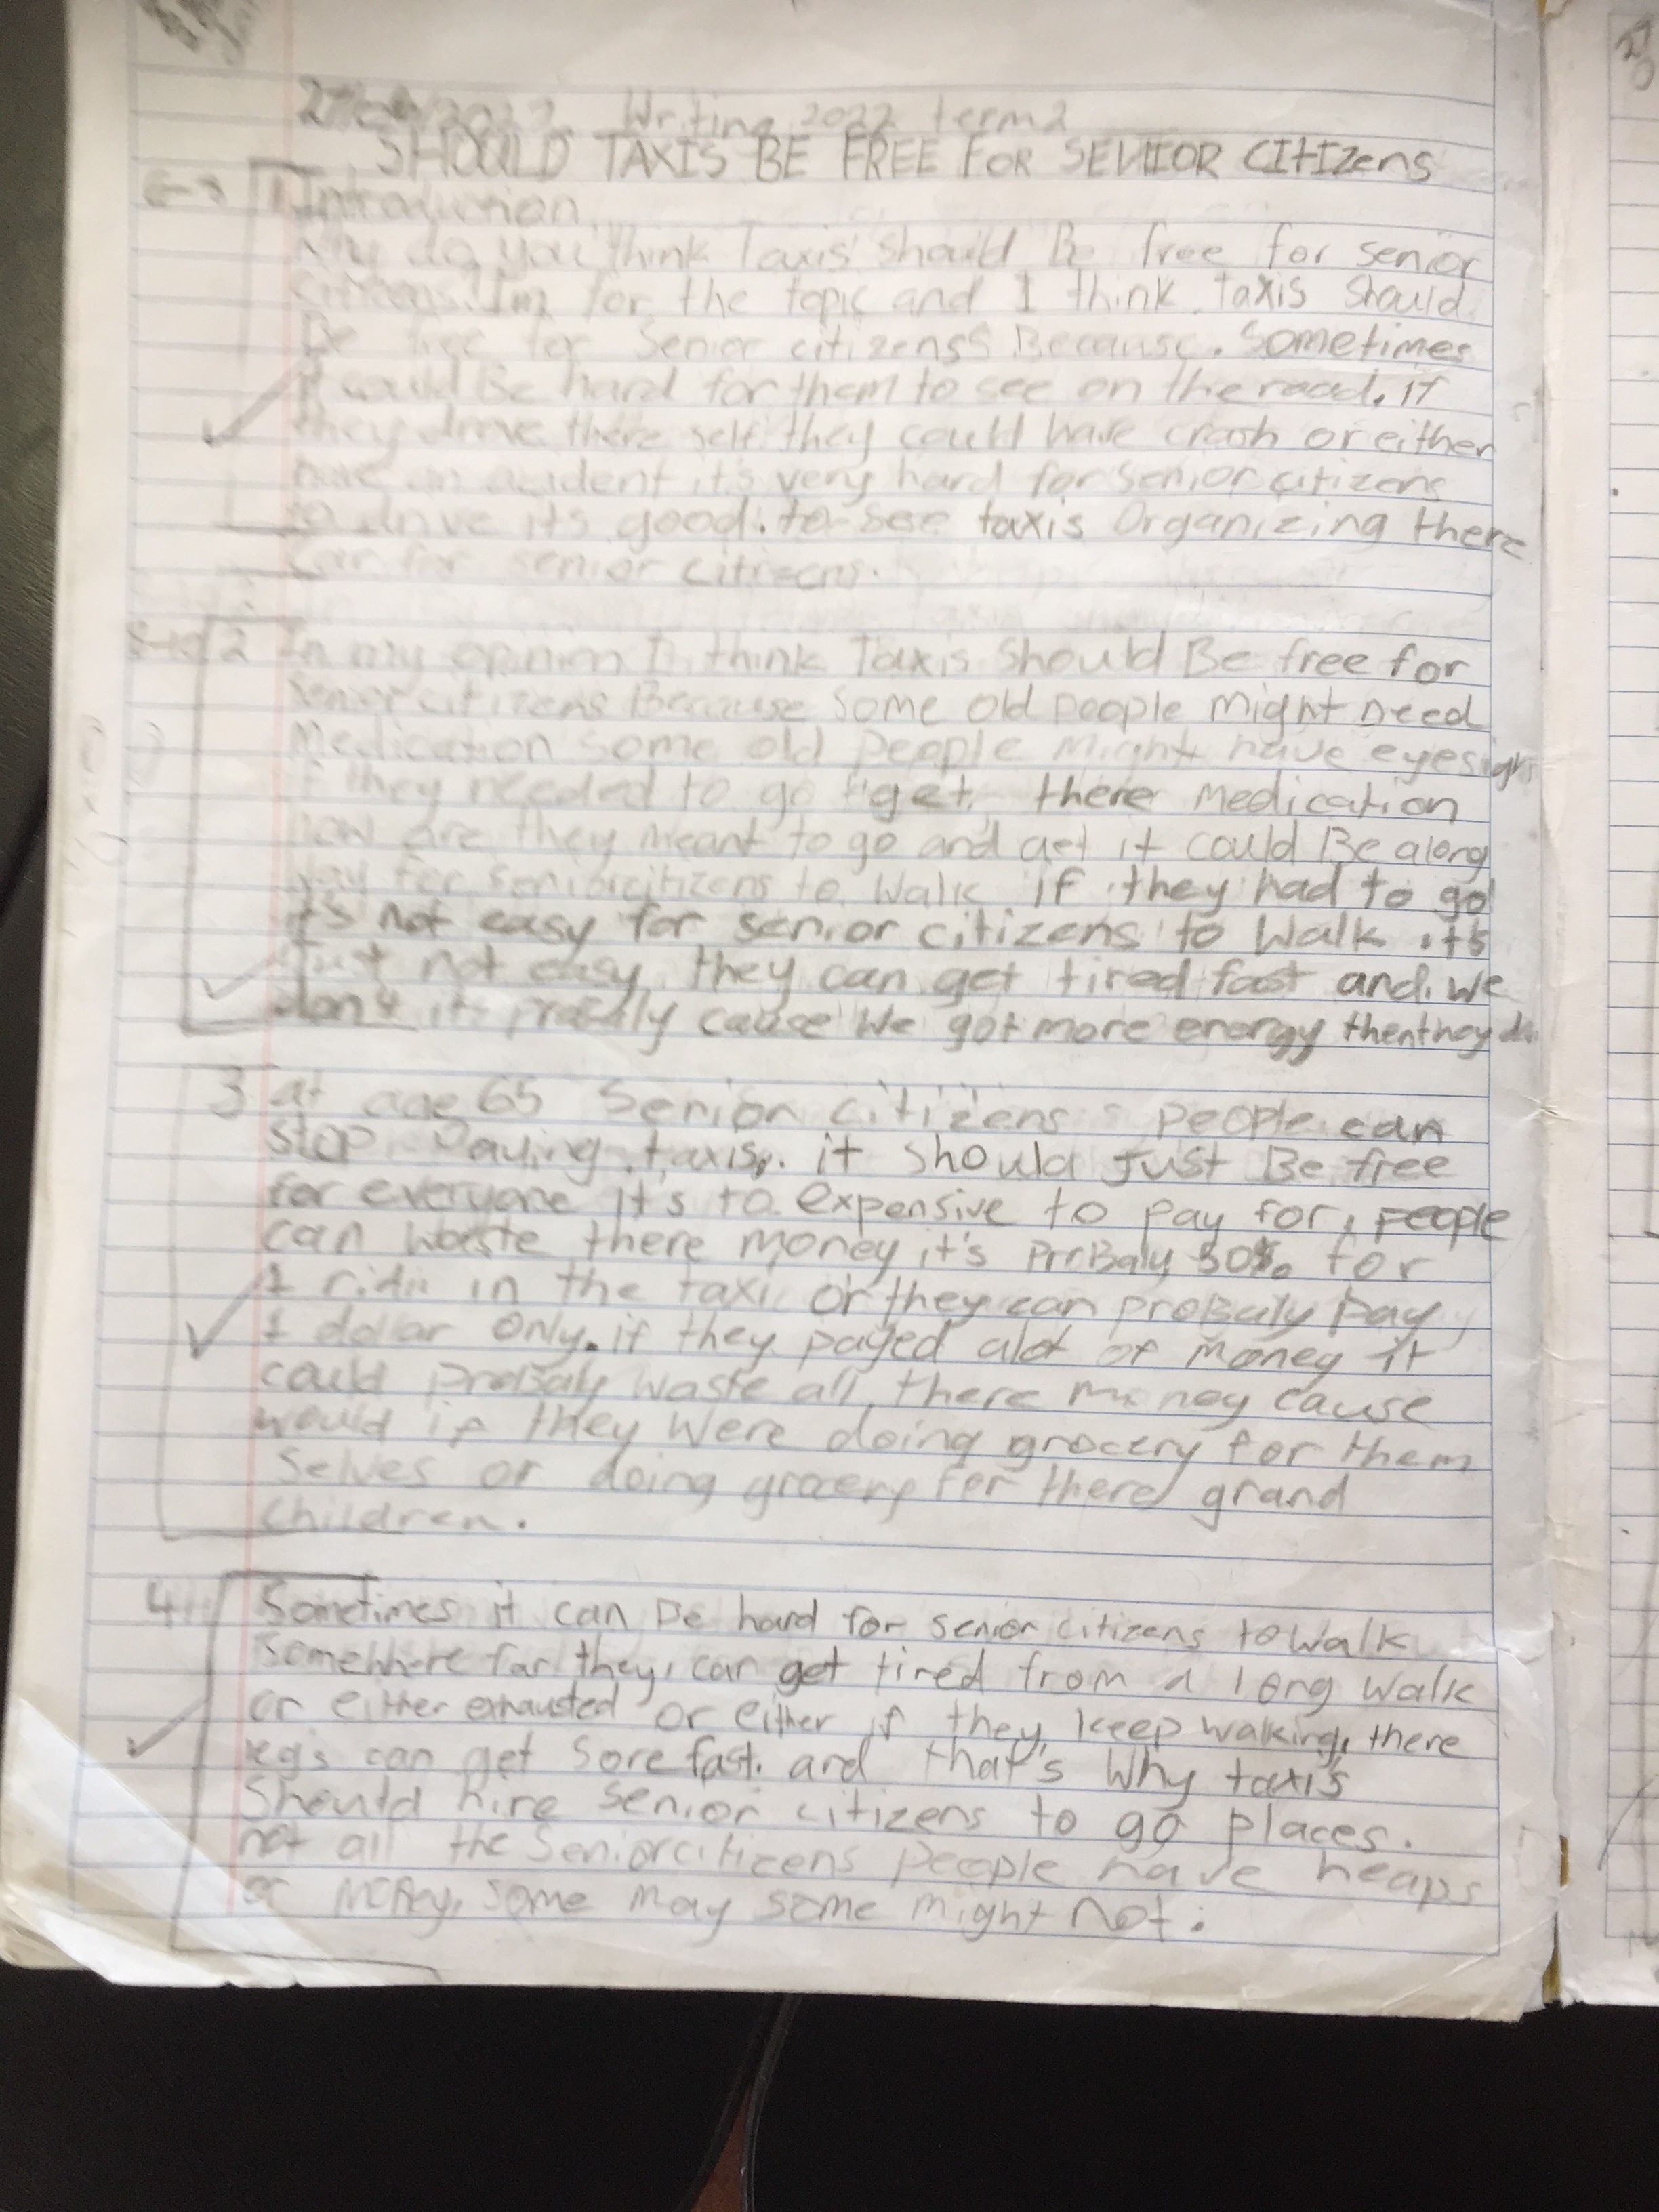 Writing 2022 term 2
SHOULD TAXIS BE FREE FOR SENIOR CITIzens
1 Introduction
Why do you think Taxis should Be free for senior
citizens. I'm for the topic and I think taxis should
Be free for Senior citizens Because. Sometimes
it could Be hard for them to see on the road. if
they drive there self they could have crash or either
have an accident it's very hard for senior citizens
to drive its good. to see taxis Organizing there
car for senior citizens.
2 In my opinion I think Taxis Should Be free for
senior citizens Because Some old people might need
Medication some old people might have eyesight
if they needed to go get there medication
how are they meant to go and get it could Be along
way for senior citizens to walk if they had to go
it's not easy for senior citizens to walk it's
Just not easy they can get tired fast and we
don't it probaly cause we got more energy then they do.
3 at age 65 Senior citizens people can
stop Paying taxis. it should Just Be free
for everyone it's to expensive to pay for, people
can waste there money it's ProBaly for
1 ride in the taxi or they can probaly pay
1 dollar only. if they payed alot of money it
could proBaly waste all there money cause
would if they were doing grocery for them
selves or doing grocery for there grand
children.
4 Sometimes it can be hard for senior citizens to walk
somewhere far they can get tired from a long walk
or either exhausted or either if they keep walking, there
legs can get sore fast. and that's why taxi's
should hire senior citizens to go places.
not all the senior citizens people have heaps
of money, some may some might not.